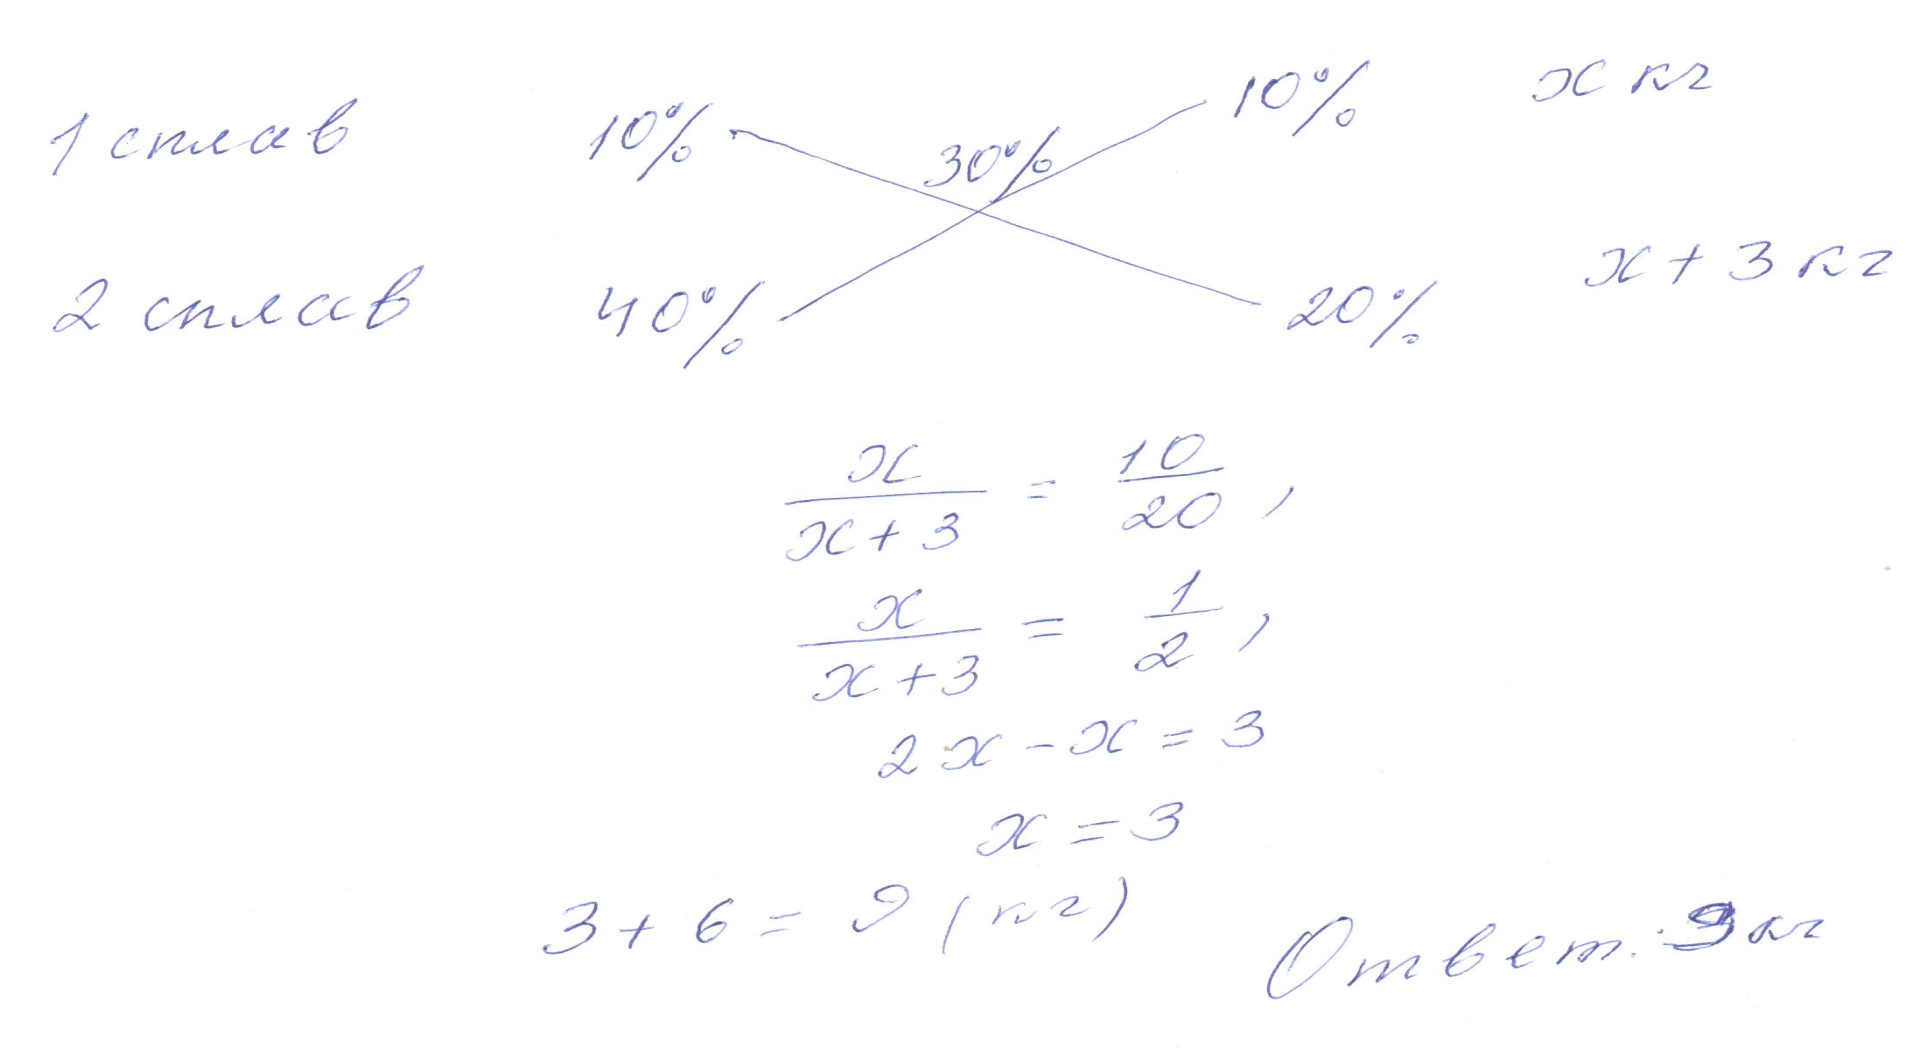 1 сплав 10% 30% 10% x кг
2 сплав 40% 20% x + 3 кг
x/(x + 3) = 10/20,
x/(x + 3) = 1/2,
2x - x = 3
x = 3
3 + 6 = 9 (кг)
Ответ: 9 кг